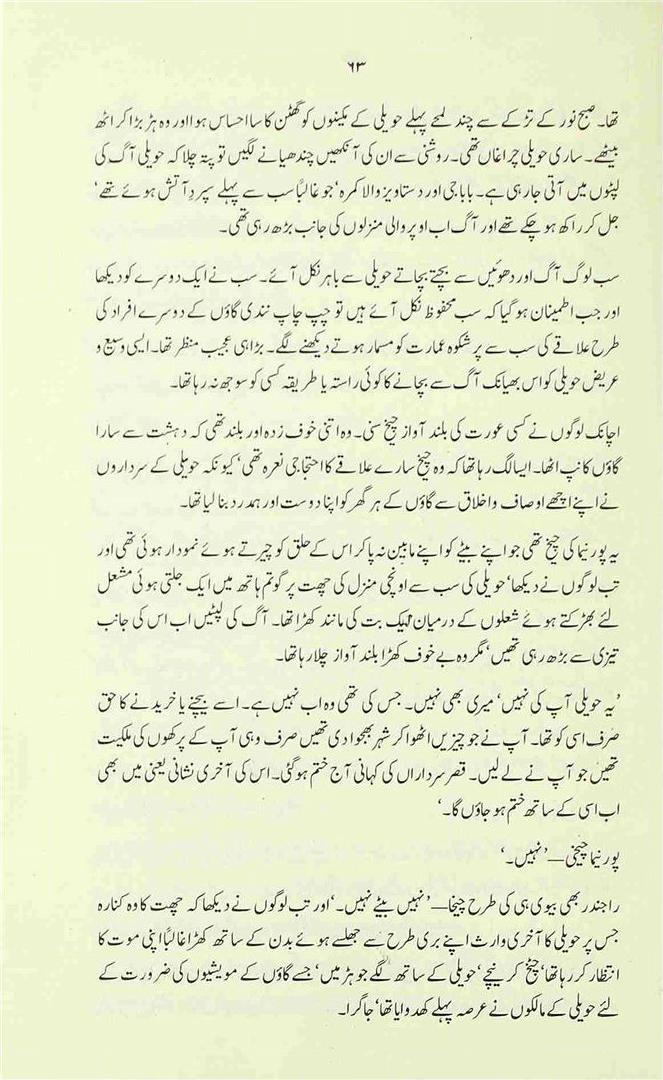 ۶۳
تھا۔ صبح نور کے تڑکے سے چند لمحے پہلے حویلی کے مکینوں کو گھٹن کا سا احساس ہوا اور وہ ہڑبڑا کر اٹھ
بیٹھے۔ ساری حویلی چراغاں تھی۔ روشنی سے ان کی آنکھیں چندھیانے لگیں تو پتہ چلا کہ حویلی آگ کی
لپٹوں میں آتی جا رہی ہے۔ بابا جی اور دستاویز والا کمرہ‘ جو غالباً سب سے پہلے سپردِ آتش ہوئے تھے‘
جل کر راکھ ہو چکے تھے اور آگ اب اوپر والی منزلوں کی جانب بڑھ رہی تھی۔
سب لوگ آگ اور دھوئیں سے بچتے بچاتے حویلی سے باہر نکل آئے۔ سب نے ایک دوسرے کو دیکھا
اور جب اطمینان ہو گیا کہ سب محفوظ نکل آئے ہیں تو چپ چاپ نندی گاؤں کے دوسرے افراد کی
طرح علاقے کی سب سے پر شکوہ عمارت کو مسمار ہوتے دیکھنے لگے۔ بڑا ہی عجیب منظر تھا۔ ایسی وسیع و
عریض حویلی کو اس بھیانک آگ سے بچانے کا کوئی راستہ یا طریقہ کسی کو سوجھ نہ رہا تھا۔
اچانک لوگوں نے کسی عورت کی بلند آواز چیخ سنی۔ وہ اتنی خوف زدہ اور بلند تھی کہ دہشت سے سارا
گاؤں کانپ اٹھا۔ ایسا لگ رہا تھا کہ وہ چیخ سارے علاقے کا احتجاجی نعرہ تھی‘ کیونکہ حویلی کے سرداروں
نے اپنے اچھے اوصاف و اخلاق سے گاؤں کے ہر گھر کو اپنا دوست اور ہمدرد بنا لیا تھا۔
یہ پورنیما کی چیخ تھی جو اپنے بیٹے کو اپنے مابین نہ پا کر اس کے حلق کو چیرتے ہوئے نمودار ہوئی تھی اور
تب لوگوں نے دیکھا‘ حویلی کی سب سے اونچی منزل کی چھت پر گوتم ہاتھ میں ایک جلتی ہوئی مشعل
لئے بھڑکتے ہوئے شعلوں کے درمیان ایک بت کی مانند کھڑا تھا۔ آگ کی لپٹیں اب اس کی جانب
تیزی سے بڑھ رہی تھیں‘ مگر وہ بے خوف کھڑا بلند آواز چلا رہا تھا۔
’یہ حویلی آپ کی نہیں‘ میری بھی نہیں۔ جس کی تھی وہ اب نہیں ہے۔ اسے بیچنے یا خریدنے کا حق
صرف اسی کو تھا۔ آپ نے جو چیزیں اٹھوا کر شہر بھجوا دی تھیں صرف وہی آپ کے پرکھوں کی ملکیت
تھیں جو آپ نے لے لیں۔ قصر سرداراں کی کہانی آج ختم ہو گئی۔ اس کی آخری نشانی یعنی میں بھی
اب اسی کے ساتھ ختم ہو جاؤں گا۔‘
پورنیما چیخی—’نہیں۔‘
راجندر بھی بیوی ہی کی طرح چیخا—’نہیں بیٹے نہیں۔‘ اور تب لوگوں نے دیکھا کہ چھت کا وہ کنارہ
جس پر حویلی کا آخری وارث اپنے بری طرح سے جھلسے ہوئے بدن کے ساتھ کھڑا غالباً اپنی موت کا
انتظار کر رہا تھا‘ چیخ کر نیچے‘ حویلی کے ساتھ لگے جوہڑ میں‘ جسے گاؤں کے مویشیوں کی ضرورت کے
لئے حویلی کے مالکوں نے عرصہ پہلے کھدوایا تھا‘ جا گرا۔